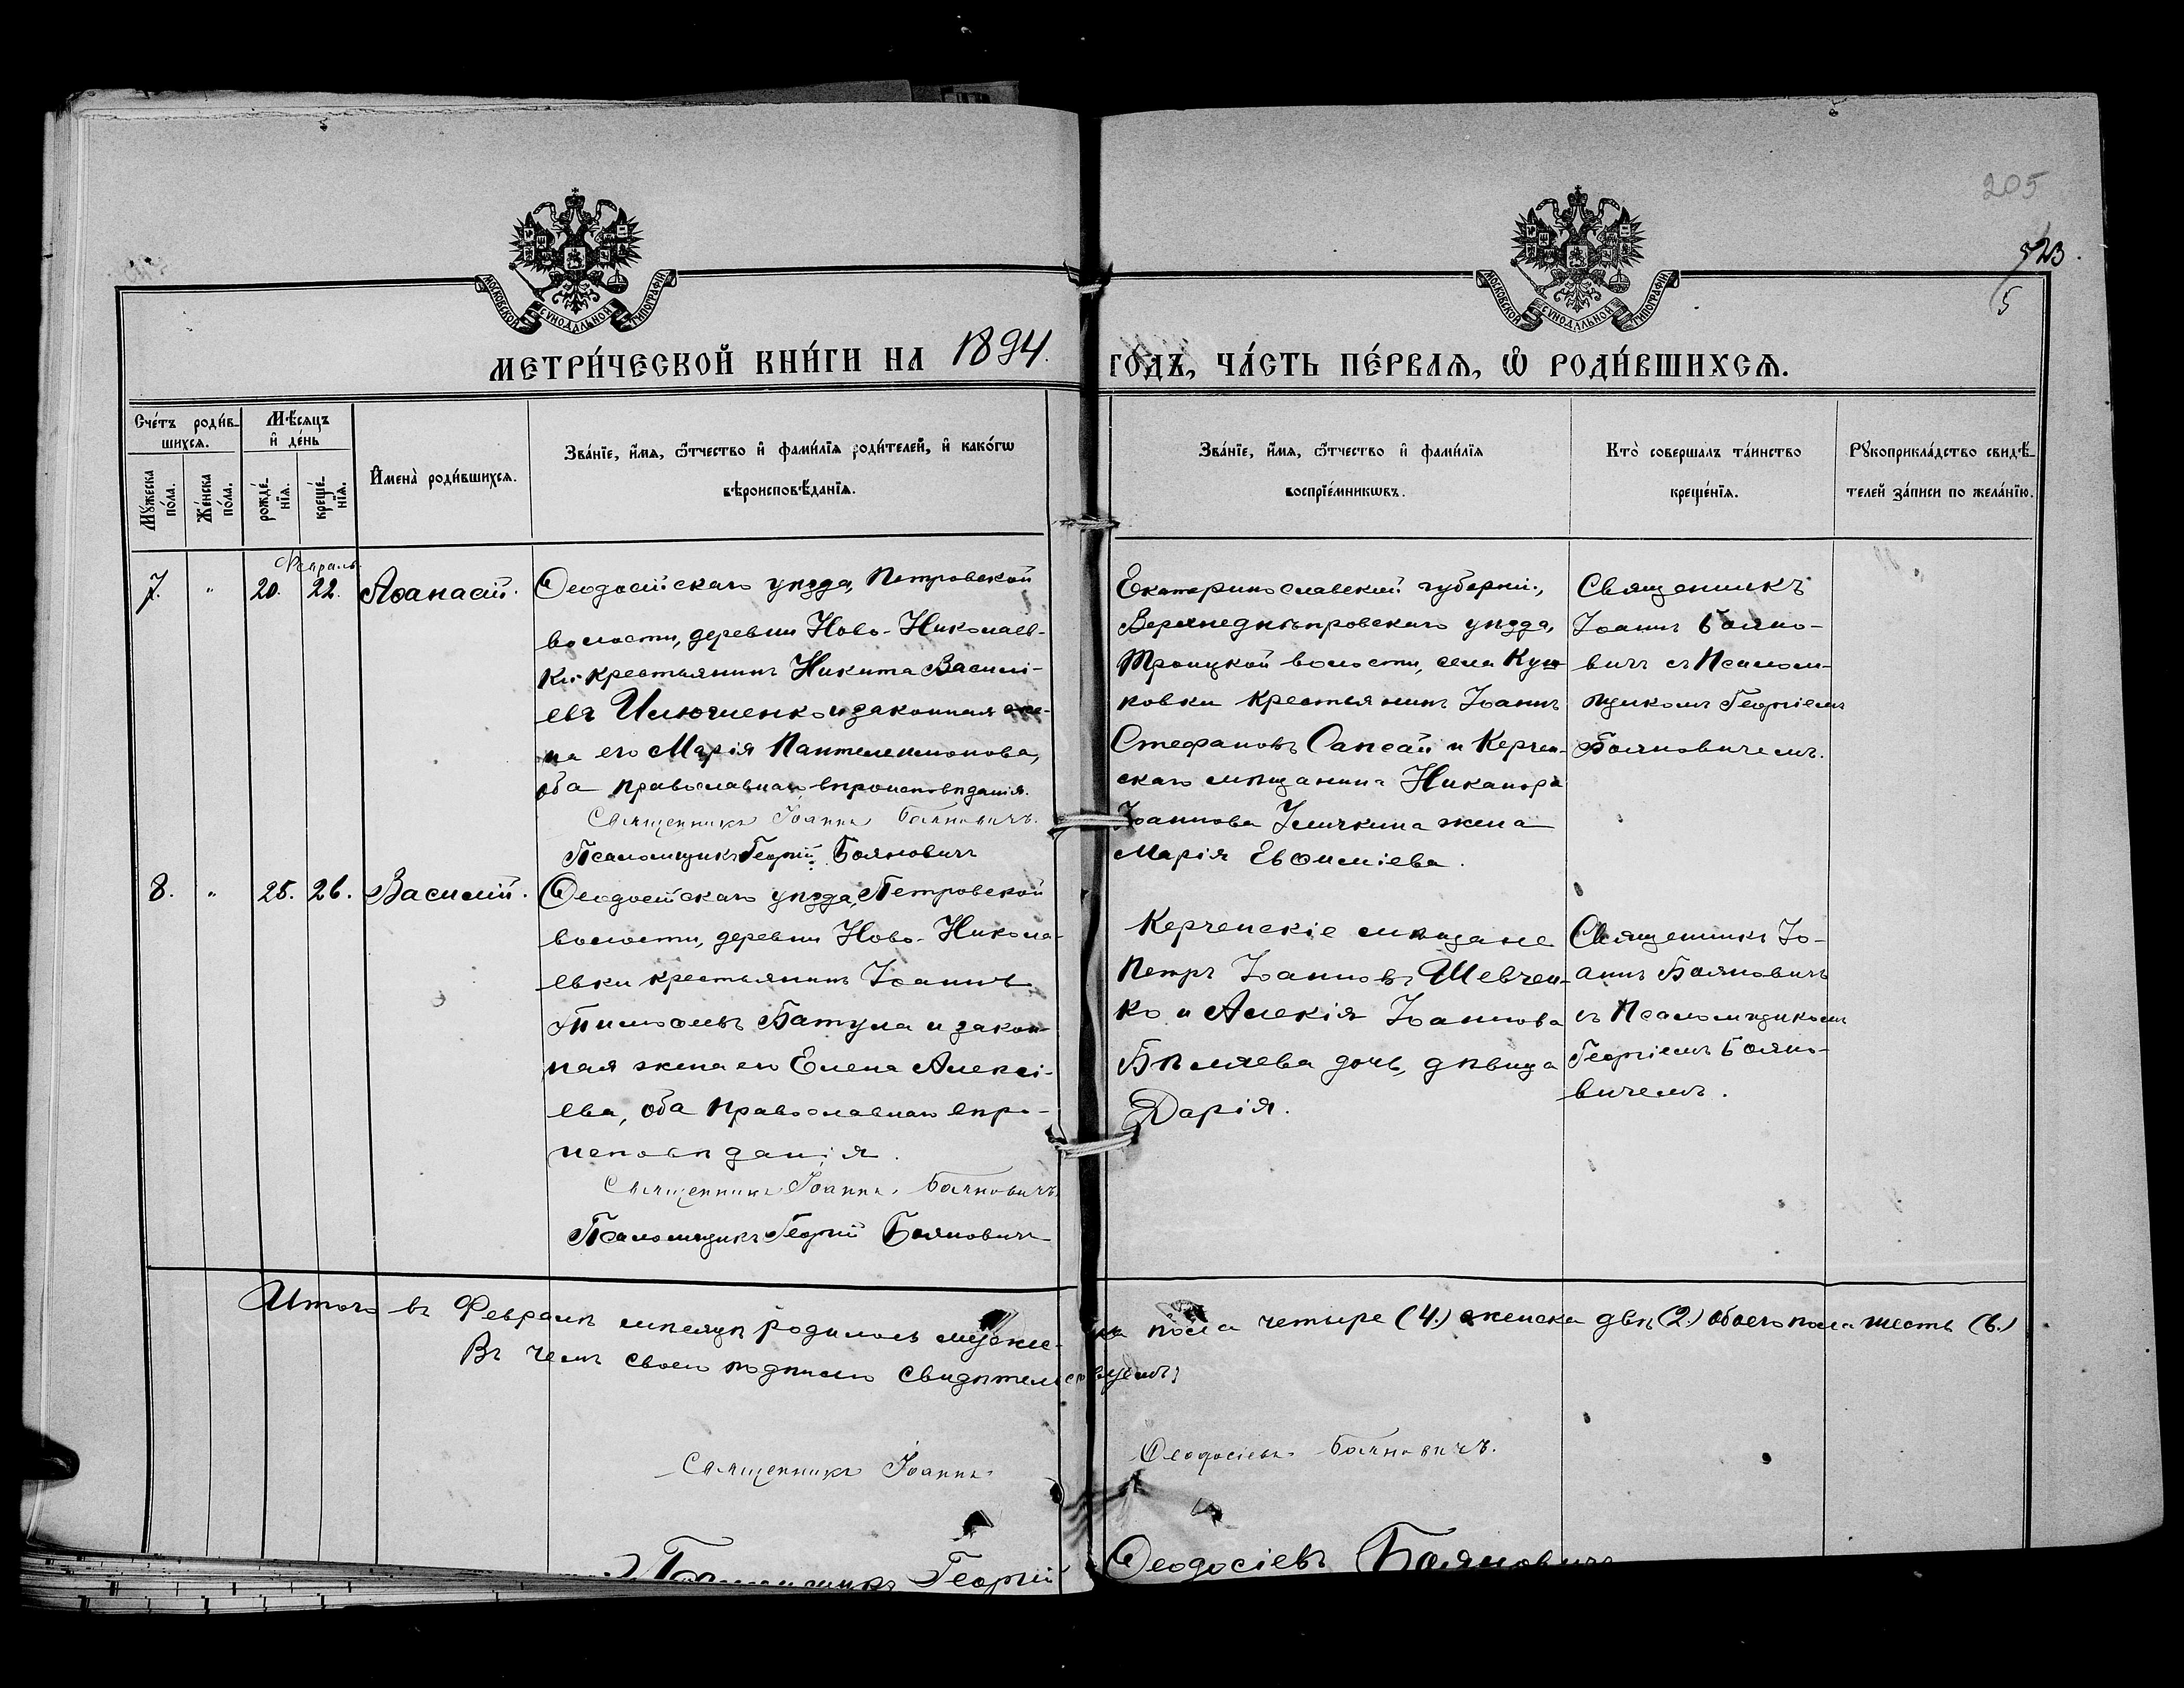 205
523.
5
МОСКОВСКОЙ СѴНОДАЛЬНОЙ ТИПОГРАФІИ
МОСКОВСКОЙ СѴНОДАЛЬНОЙ ТИПОГРАФІИ
МЕТРИ́ЧЕСКОЙ КНИ́ГИ НА 1894. ГО́ДЪ, ЧА́СТЬ ПЕ́РВАѦ, Ѽ РОДИ́ВШИХСѦ.
Сче́тъ роди́в-
шихсѧ.
Мꙋ́жеска по́ла.
Же́нска по́ла.
Мѣ́сѧцъ
и҆ де́нь
рожде́-
нїѧ.
креще́-
нїѧ.
И҆мена̀ роди́вшихсѧ.
Зва́нїе, и҆́мѧ, ѻ҆́тчество и҆ фами́лїѧ роди́телей, и҆ како́гѡ
вѣроисповѣ́данїѧ.
Зва́нїе, и҆́мѧ, ѻ҆́тчество и҆ фами́лїѧ
воспрїе́мникѡвъ.
Кто̀ совершалъ та́инство
креще́нїѧ.
Рꙋкоприкла́дство свидѣ́-
телей за́писи по жела́нїю.
Февраль
7. " 20. 22. Аѳанасій.
Ѳеодосійскаго уѣзда, Петровской
волости, деревни Ново-Николаев-
ки крестьянинъ Никита Василі-
евъ Илюченко и законная же-
на его Марія Пантелеимонова,
оба православнаго вѣроисповѣданія.
Священникъ Іоаннъ Бояновичъ.
Псаломщикъ Георгій Бояновичъ
Екатеринославской губерніи,
Верхнеднѣпровскаго уѣзда,
Троицкой волости, села
крестьянинъ Іоаннъ
Стефановъ Сапсай и Керчен-
скаго мѣщанина Никанора
Іоаннова жена
Марія Евѳиміева.
Священникъ
Іоаннъ Бояно-
вичъ съ Псалом-
щикомъ Георгіемъ
Бояновичемъ.
8. " 25. 26. Василій.
Ѳеодосійскаго уѣзда, Петровской
волости, деревни Ново-Никола-
евки крестьянинъ Іоаннъ
Батула и закон-
ная жена его Елена Алексі-
ева, оба православнаго вѣро-
исповѣданія.
Священникъ Іоаннъ Бояновичъ
Псаломщикъ Георгій Бояновичъ
Керченскіе мѣщане
Петръ Іоанновъ Шевчен-
ко и Алексія Іоаннова
Бѣляева дочь, дѣвица
Дарія.
Священникъ Іо-
аннъ Бояновичъ
съ Псаломщикомъ
Георгіемъ Бояно-
вичемъ.
Итого въ Февралѣ мѣсяцѣ родилось мужеска пола четыре (4.) женска двѣ (2.) обоего пола шесть (6.)
Въ чемъ своею подписью свидѣтельствуемъ:
Священникъ Іоаннъ Ѳеодосіевъ Бояновичъ.
Псаломщикъ Георгій Ѳеодосіевъ Бояновичъ